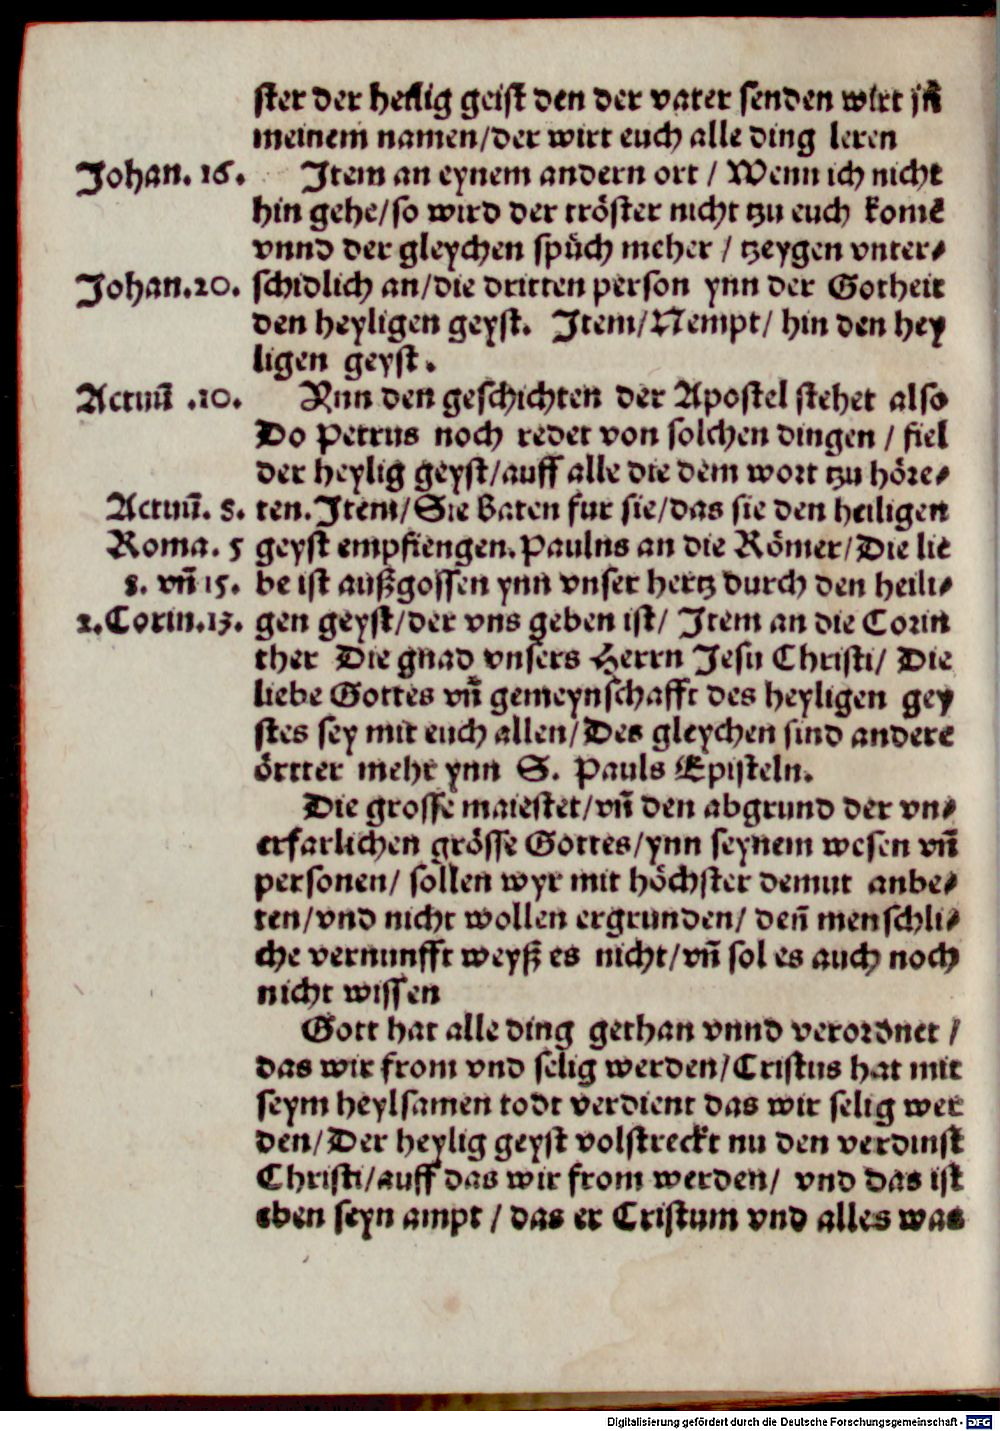 ster der heilig geist den der vater senden wirt jn̄
meinem namen/der wirt euch alle ding leren
Johan. 16. Jtem an eynem andern ort / Wenn ich nicht
hin gehe/so wird der tröster nicht tzu euch komē
vnnd der gleychen spüch meher / tzeygen vnter⸗
Johan.20. schidlich an/die dritten person ynn der Gotheit
den heyligen geyst. Jtem/Nempt/ hin den hey
ligen geyst.
Actuū .10. Ynn den geschichten der Apostel stehet also
Do Petrus noch redet von solchen dingen / fiel
der heylig geyst/auff alle die dem wort tzu höre⸗
Actuū. 8. ten.Jtem/Sie baten fur sie/das sie den heiligen
Roma. 5 geyst empfiengen.Paulus an die Römer/Die lie
8. vn̄ 15. be ist außgossen ynn vnser hertz durch den heili⸗
2.Corin.13. gen geyst/der vns geben ist/ Jtem an die Corin
ther Die gnad vnsers Herrn Jesu Christi/ Die
liebe Gottes vn̄ gemeynschafft des heyligen gey
stes sey mit euch allen/Des gleychen sind andere
örtter mehr ynn S. Pauls Episteln.
Die grosse maiestet/vn̄ den abgrund der vn⸗
erfarlichen grösse Gottes/ynn seynem wesen vn̄
personen/ sollen wyr mit höchster demut anbe⸗
ten/vnd nicht wollen ergrunden/ den̄ menschli⸗
che vernunfft weyß es nicht/vn̄ sol es auch noch
nicht wissen
Gott hat alle ding gethan vnnd verordnet /
das wir from vnd selig werden/Cristus hat mit
seym heylsamen todt verdient das wir selig wer
den/Der heylig geyst volstreckt nu den verdinst
Christi/auff das wir from werden/ vnd das ist
eben seyn ampt / das er Cristum vnd alles was
Digitalisierung gefördert durch die Deutsche Forschungsgemeinschaft - DFG